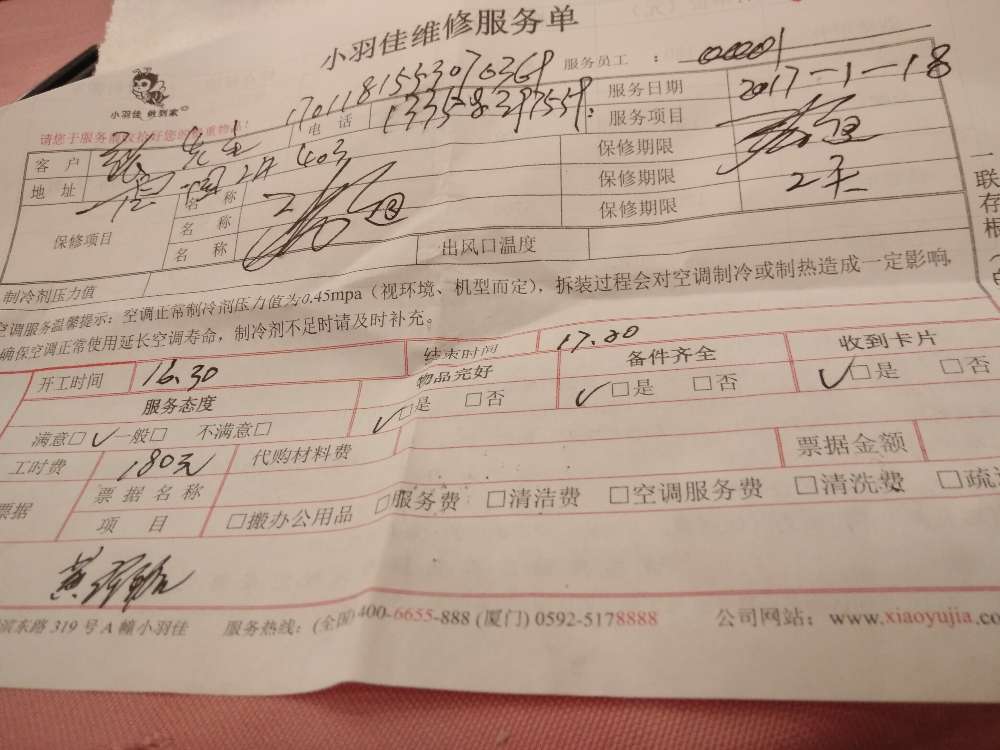 小羽佳维修服务单
小羽佳 做到家
17011815553070369 服务员工 ： 00001
请您于服务前收拾好您的贵重物品!
电 话 13358397559. 服务日期 2017-1-18
客 户 先生 服务项目
地 址 403 保修期限
保修项目 名 称 保修期限 2天
名 称 保修期限
名 称 出风口温度
制冷剂压力值
空调服务温馨提示：空调正常制冷剂压力值为0.45mpa（视环境、机型而定），拆装过程会对空调制冷或制热造成一定影响，
确保空调正常使用延长空调寿命，制冷剂不足时请及时补充。
一联存根
开工时间 16.30 结束时间 17.20
服务态度 物品完好 备件齐全 收到卡片
满意□ ✓一般□ 不满意□ ✓□是 □否 ✓□是 □否 ✓□是 □否
工时费 180元 代购材料费 票据金额
票据 票据名称
项 目 □搬办公用品 □服务费 □清洁费 □空调服务费 □清洗费 □疏
滨东路319号A幢小羽佳 服务热线：(全国)400-6655-888 (厦门) 0592-5178888 公司网站：www.xiaoyujia.co